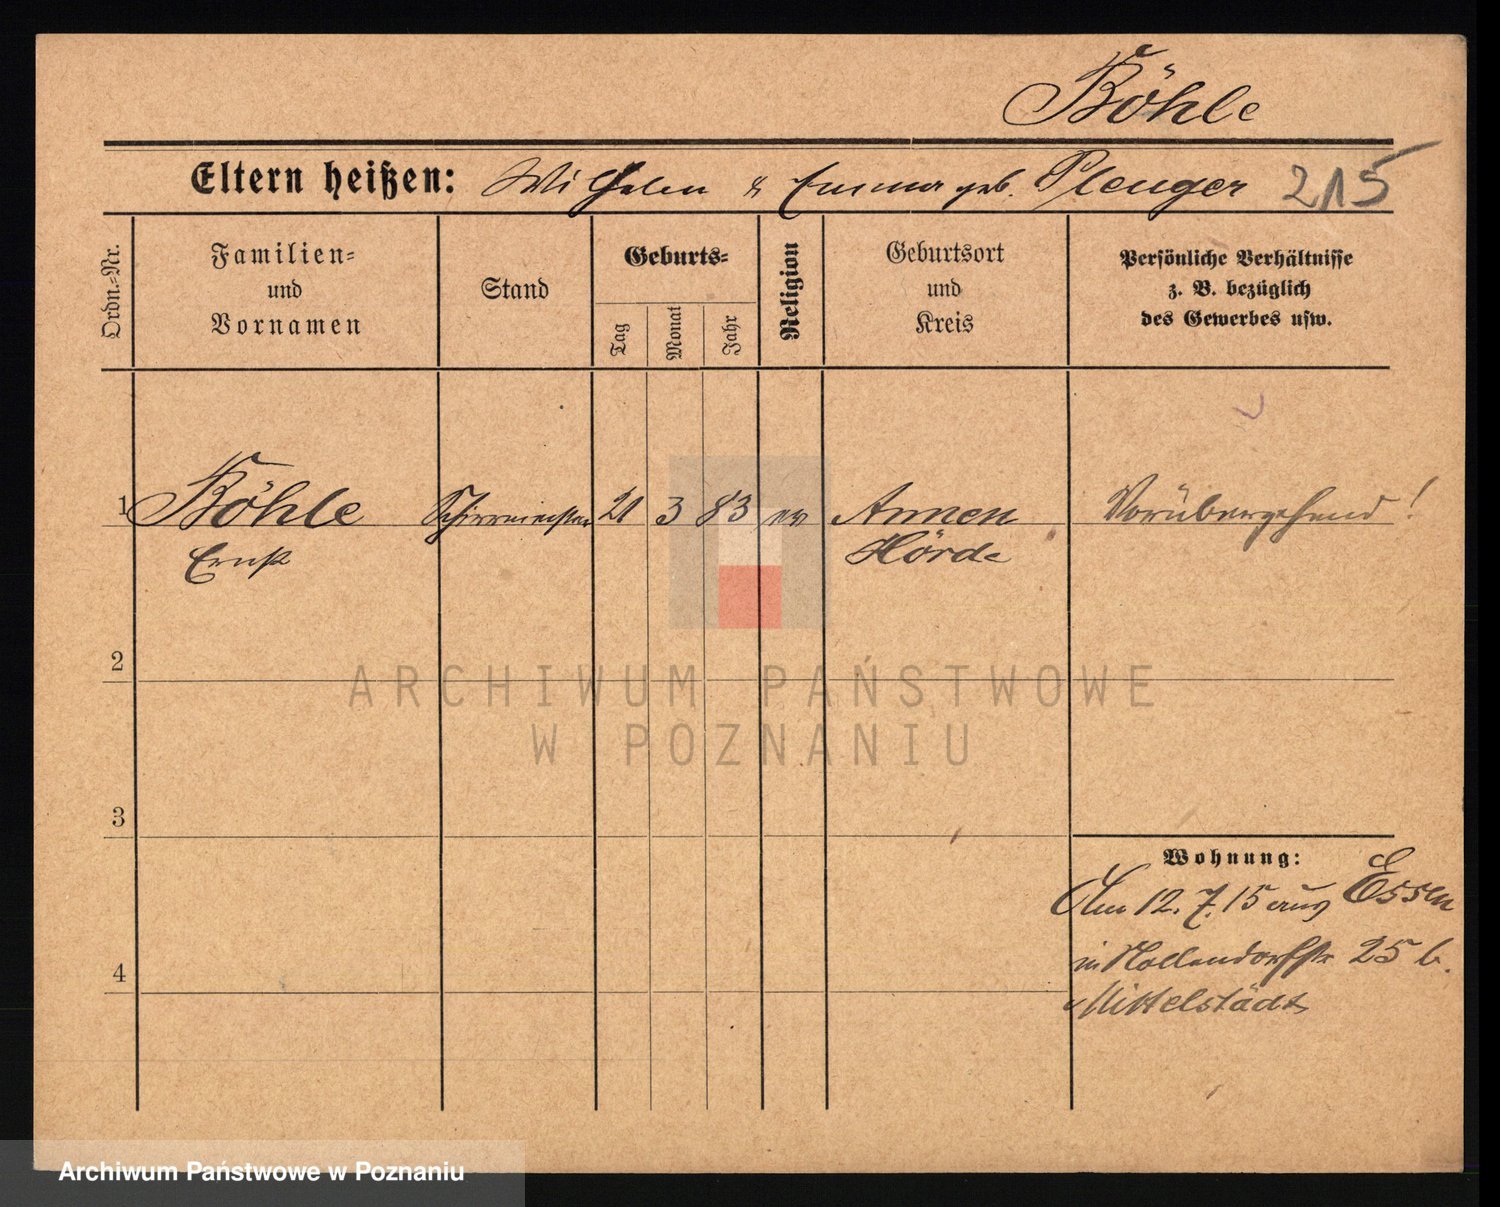 Köhle
Eltern heißen: Wilhelm & Emma geb. Plenger 215
Ordn.-Nr.
Familien-
und
Vornamen
Stand
Geburts-
Tag
Monat
Jahr
Religion
Geburtsort
und
Kreis
Persönliche Verhältnisse
z. B. bezüglich
des Gewerbes usw.
1 Köhle Schirrmeister 21 3 83 ev Annen Vorübergehend!
Ernst Hörde
2
ARCHIWUM PAŃSTWOWE
W POZNANIU
3
Wohnung:
Am 12.7.15 aus Essen
in Nollendorfstr 25 b.
4
Mittelstädt
Archiwum Państwowe w Poznaniu